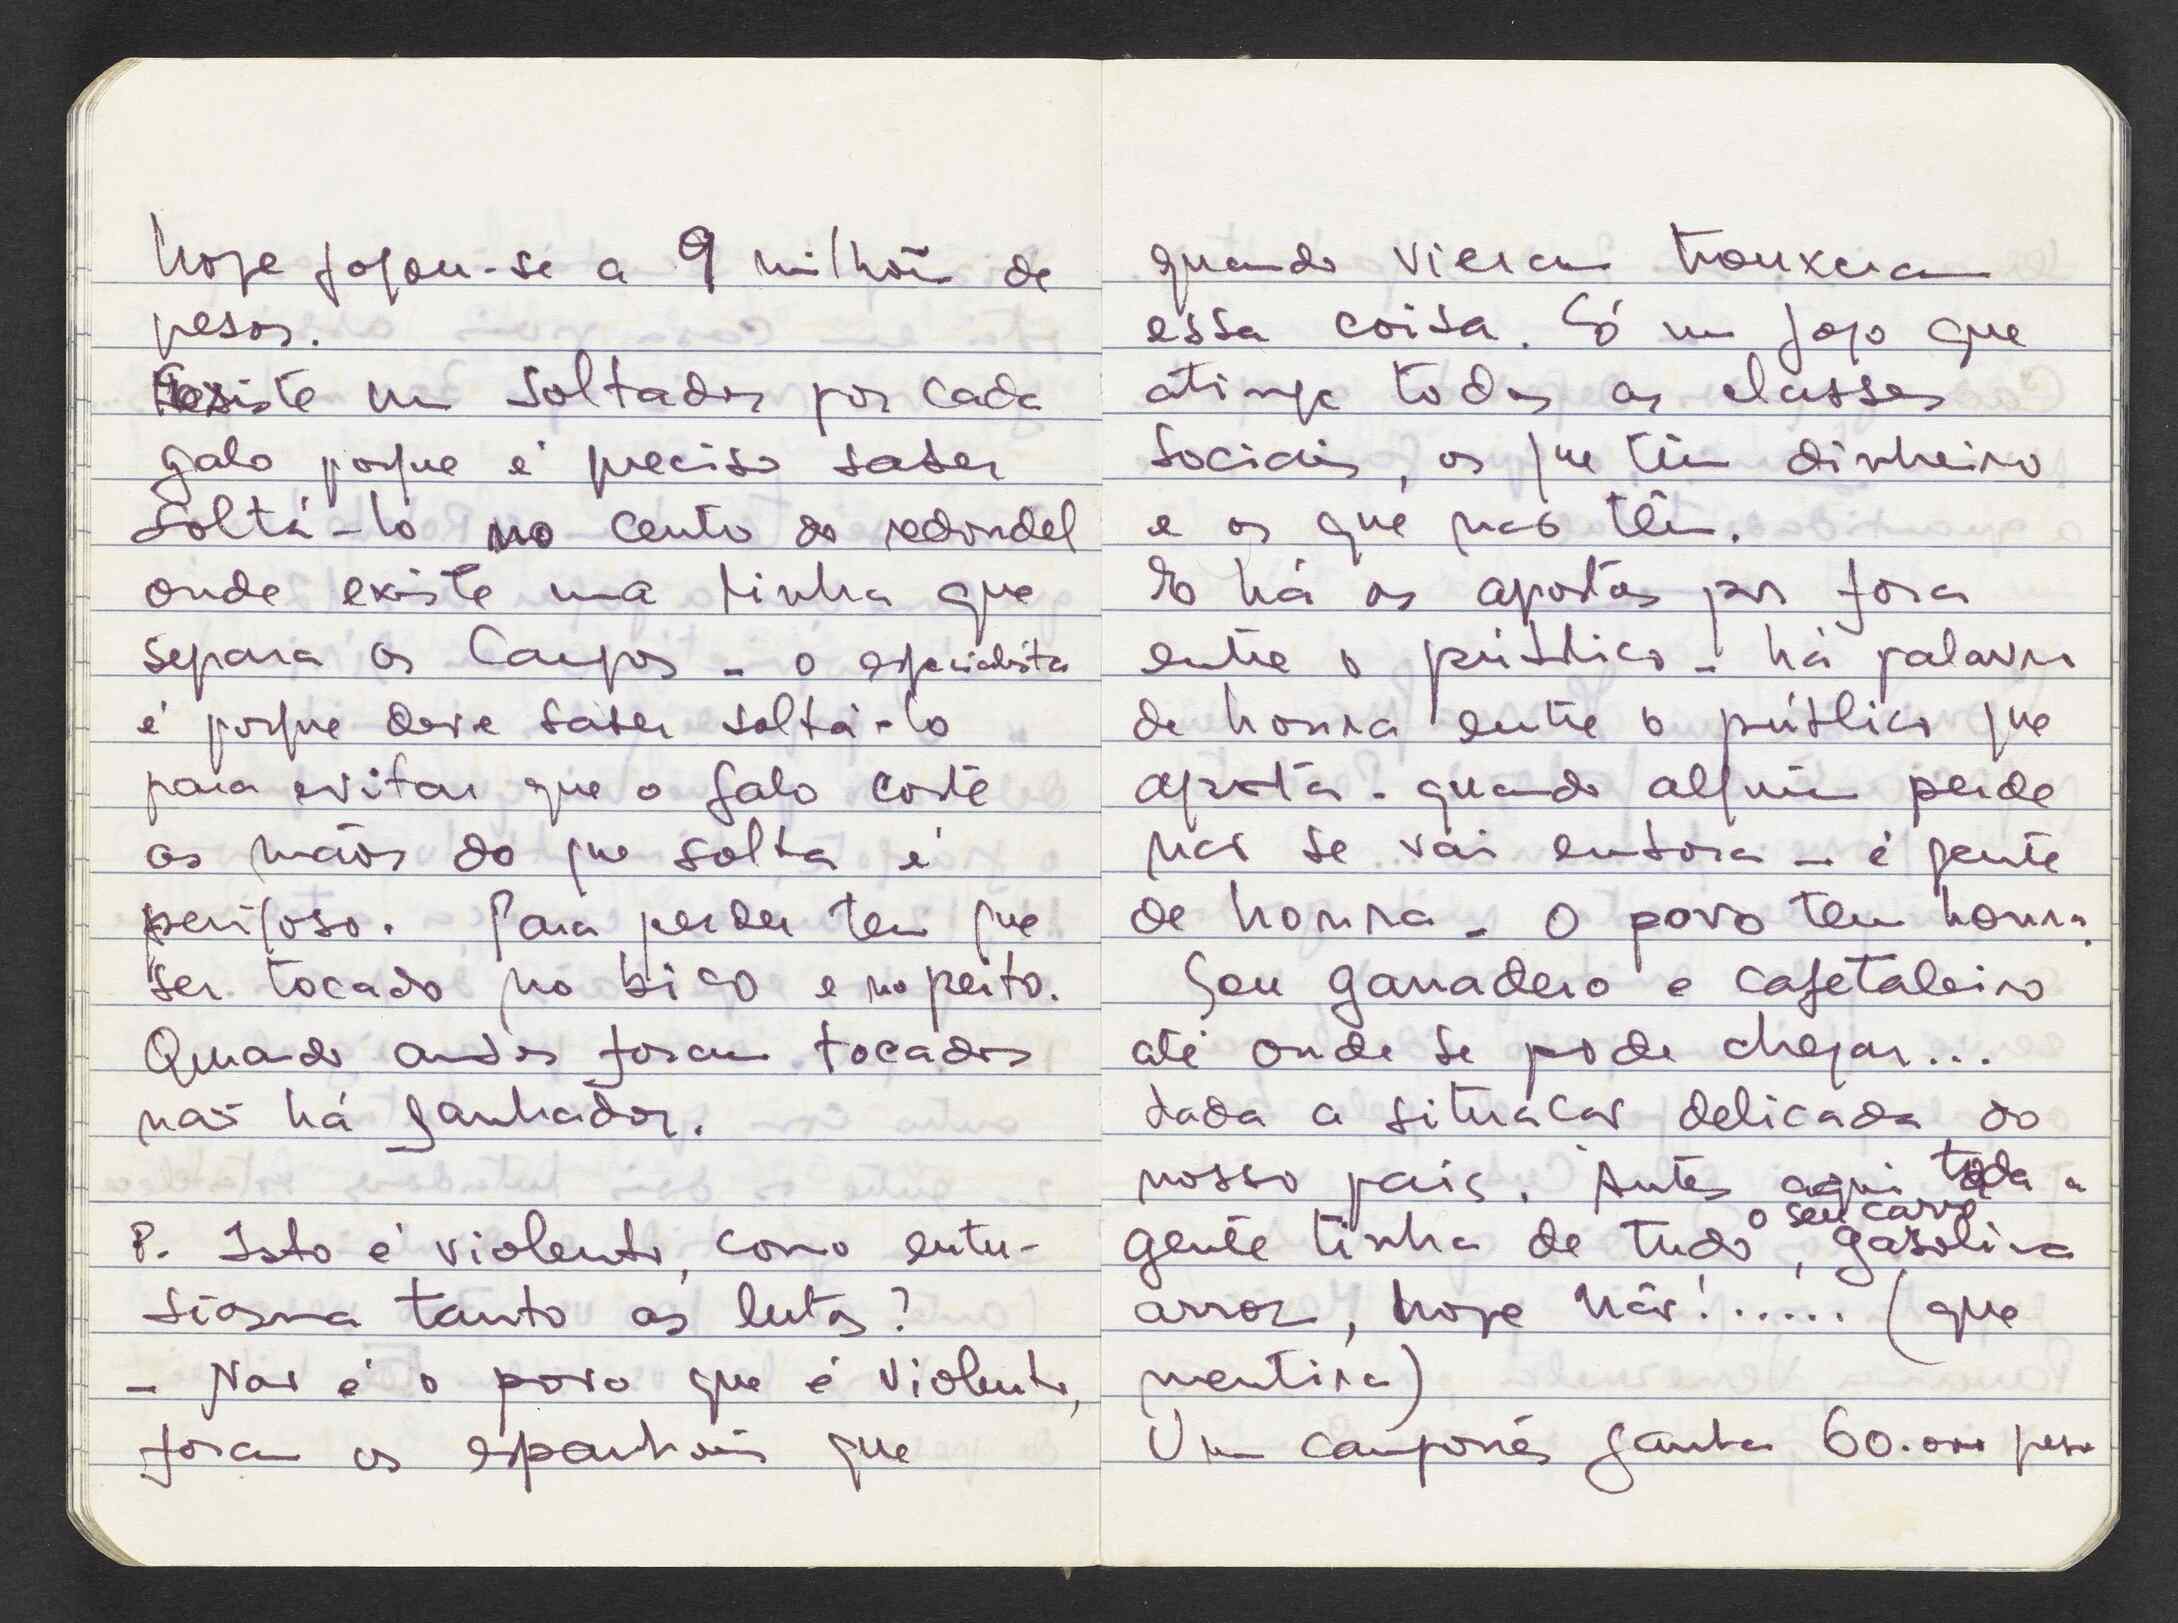 hoje jogou-se a 9 milhões de
pesos.
Existe um soltador por cada
galo porque é preciso saber
soltá-lo no centro do redondel
onde existe uma linha que
separa os campos - o especialista
é porque deve saber soltá-lo
para evitar que o galo corte
as mãos do que solta é
perigoso. Para perder tem que
ser tocado no bico e no peito.
Quando ambos foram tocados
não há ganhador.
P. Isto é violento, como entu-
siasma tanto as lutas?
- Não é o povo que é violento,
foram os espanhois que
quando vieram trouxeram
essa coisa. Só um jogo que
atinge todas as classes
sociais, os que têm dinheiro
e os que não têm.
E há as apostas por fora
entre o público - há palavra
de honra entre o público que
aposta - quando alguém perde
não se vai embora - é gente
de honra - O povo tem honra.
Sou ganadero e cafetaleiro
até onde se pode chegar...
dada a situacão delicada do
nosso pais. Antes aqui toda a
gente tinha de tudo, o seu carro, gasolina
arroz, hoje não!..... (que
mentira)
Um camponês ganha 60.000 pesos